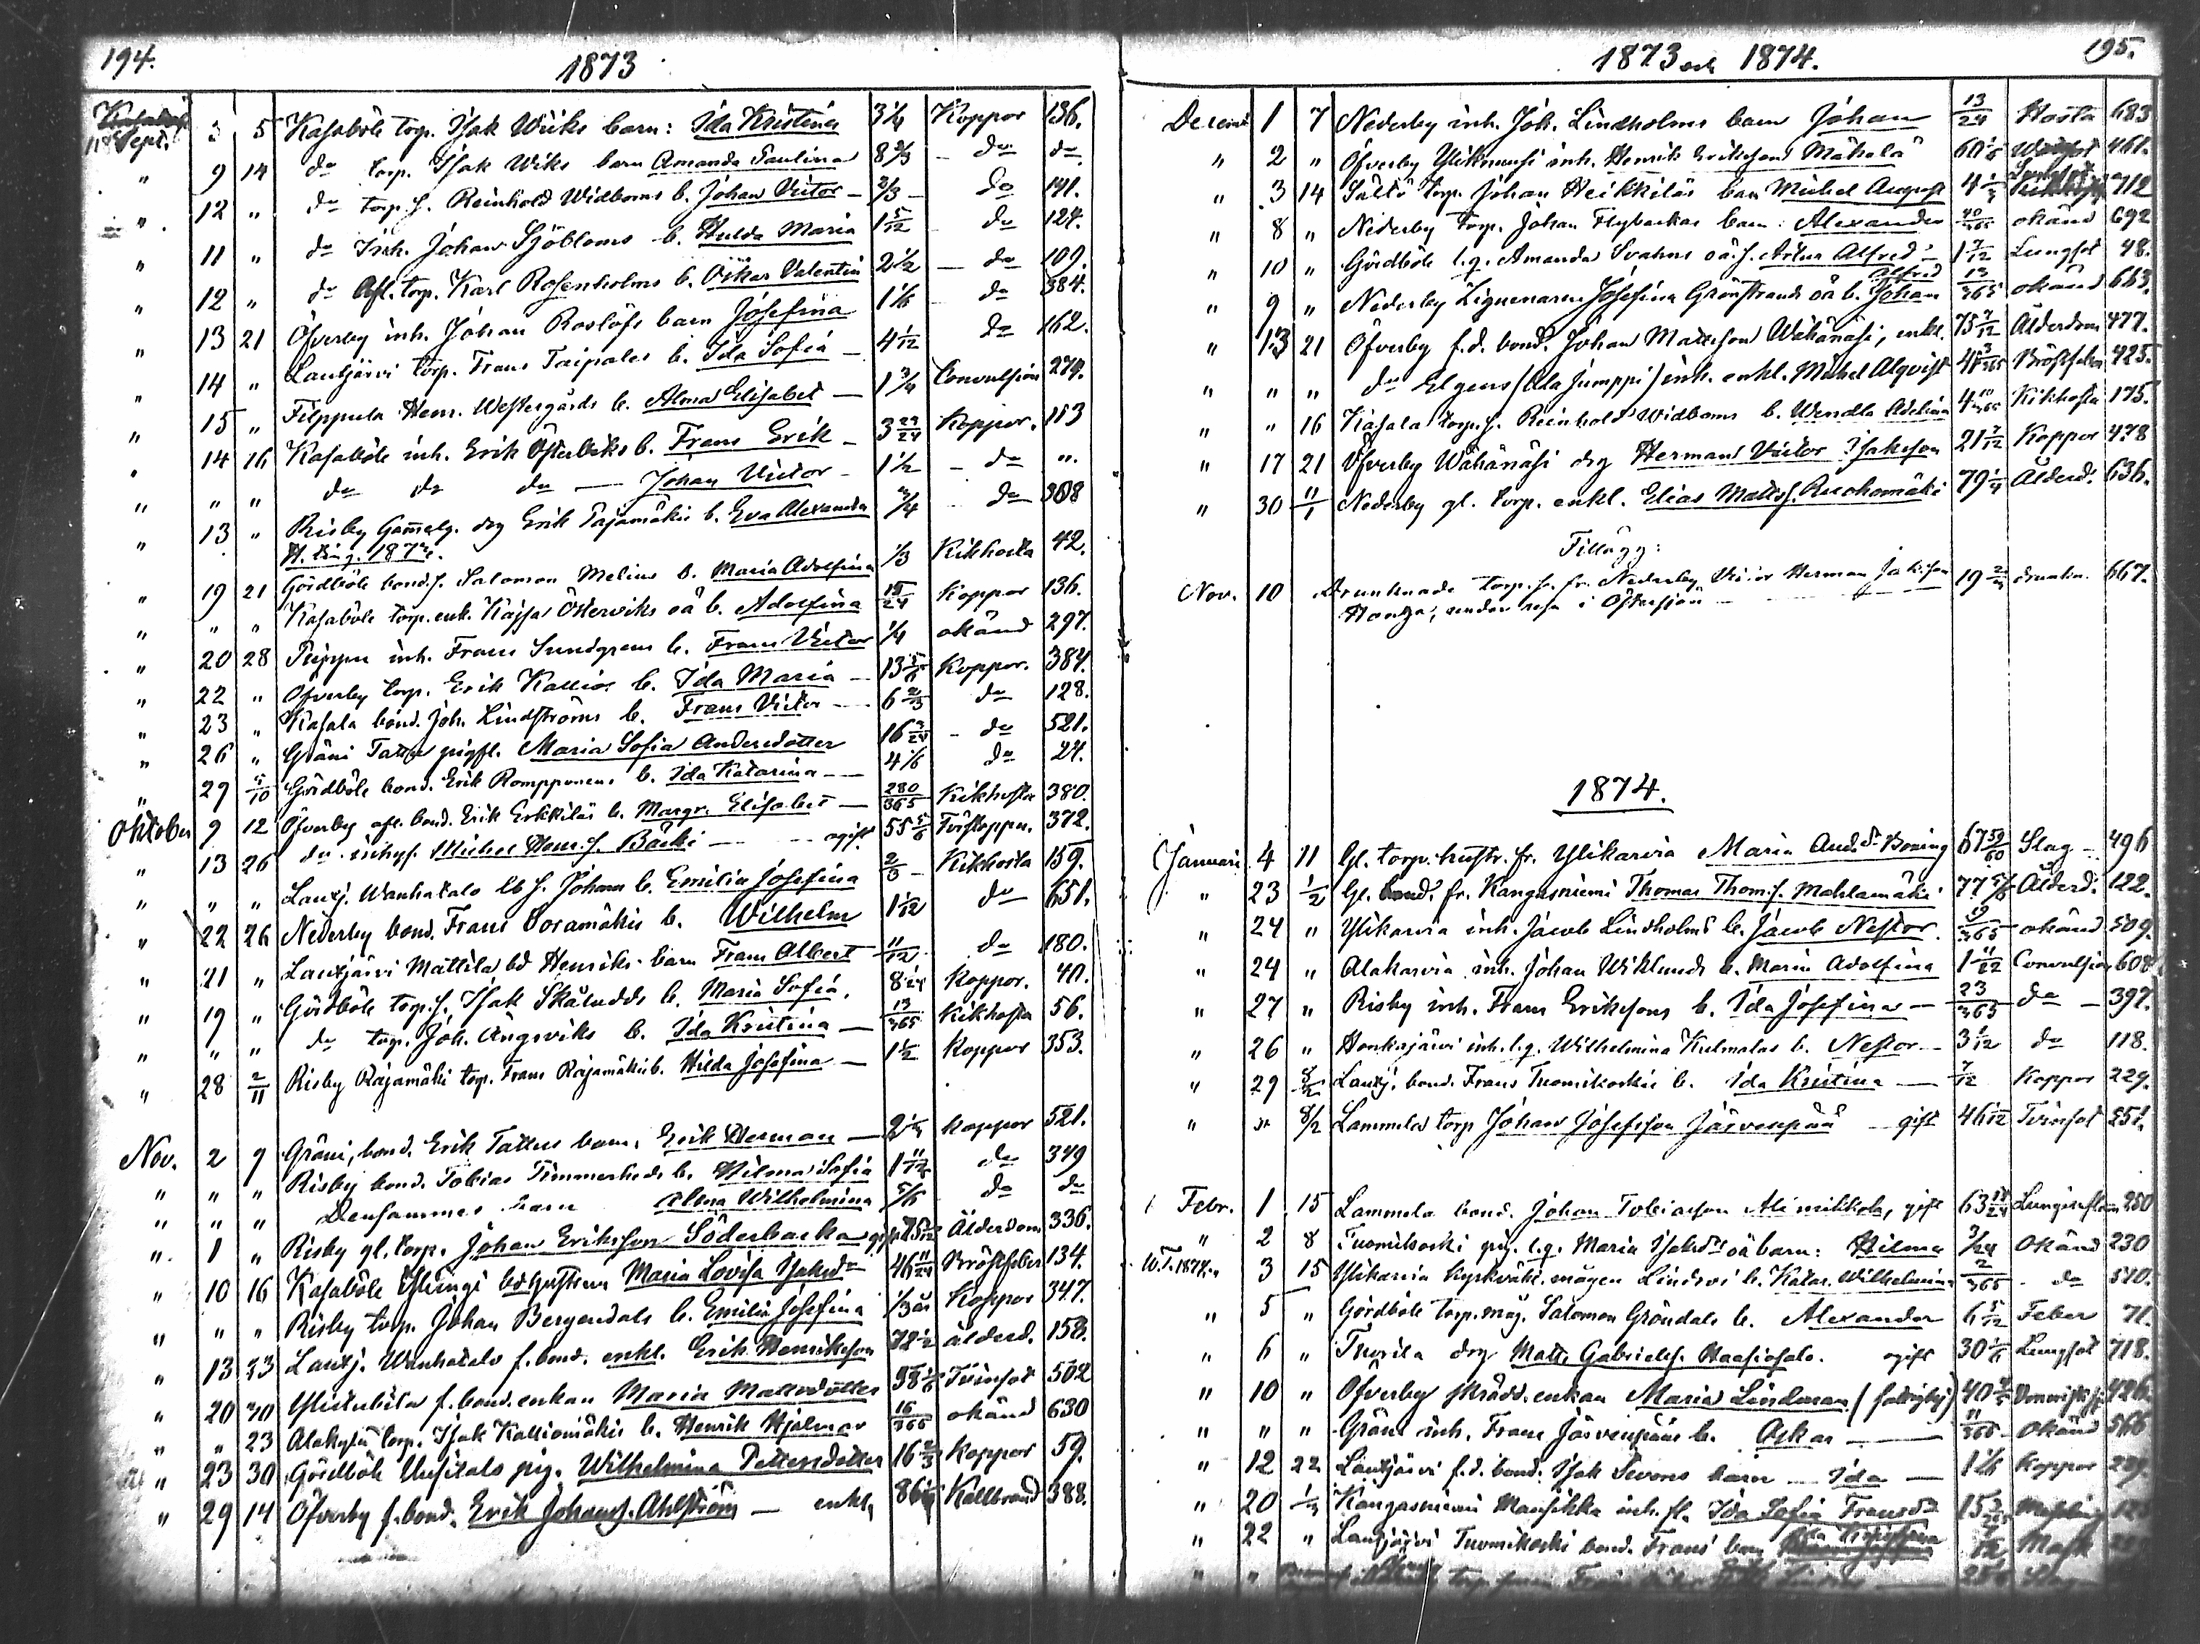 194.
1873
Sept. 3 5 Kasaböle torp. Isak Wiiks barn: Ida Kristina 3 1/4 Koppor 136.
" 9 14 do torp. Isak Wiks barn Amanda Paulina 8 2/3 do do
" 12 " do torp.s. Reinhold Widboms b. Johan Victor 2/3 do 141.
" 11 " do Inh. Johan Sjöbloms b. Hulda Maria 1 5/12 do 124.
" 12 " do Afl. torp. Karl Rosenholms b. Oskar Valentin 2 1/2 do 109.
" 13 21 Öfverby inh. Johan Roslöfs barn Josefina 1 1/6 do 384.
" 14 " Lautjärvi torp. Frans Taipales b. Ida Sofia 4 1/12 do 162.
" 15 " Filppula Henr. Westergårds b. Alma Elisabet 1 3/4 Convulsion 274.
" 14 16 Kasaböle inh. Erik Österviks b. Frans Erik 3 23/24 Koppor. 113
" " " do do do Johan Victor 1 1/2 do "
" 13 " Risby Gamelg. drg Erik Pajamäkis b. Eva Alexandra 3/4 do 308
H. ting. 1872.
" 19 21 Gördböle bond.s. Salomon Melins b. Maria Adolfina 1/3 Kikhosta 42.
" " " Kasaböle torp. enk. Kajsa Österviks oä b. Adolfina 15/24 Koppor 136.
" 20 28 inh. Frans Sundgrens b. Frans Victor 1/4 okänd 297.
" 22 " Öfverby torp. Erik Kallios b. Ida Maria 13 5/6 Koppor. 384.
" 23 " Kasala bond. Joh. Lindströms b. Frans Victor 6 2/3 do 128.
" 26 " Gräni Tattus pigfl. Maria Sofia Andersdotter 16 3/24 do 521.
" 29 5/10 Gördböle bond. Erik Rompponens b. Ida Katarina 4 1/6 do 24.
Oktober 9 12 Öfverby afl. bond. Erik Erkkiläs b. Margr. Elisabet 280/365 Kikhosta 380.
" 13 26 do inhys. Michel Henr.s. Bäcki ogift 55 5/6 372.
" " " Lautj. Wanhatalo Johans b. Emilia Josefina 2/3 Kikhosta 159.
" 22 26 Nederby bond. Frans Voramäkis b. Wilhelm 1 1/12 do 651.
" 21 " Lautjärvi Mattila bd Henriks barn Frans Albert 11/12 do 180.
" 19 " Gördböle torp.s. Isak Skäludds b. Maria Sofia. Koppor. 40.
" " " do torp. Joh. Ängsviks b. Ida Kristina 13/365 Kikhosta 56.
" 28 2/11 Risby Rajamäki torp. Frans Rajamäkis b. Hilda Josefina 1 1/2 Koppor 353.
Nov. 2 9 Gräni, bond. Erik Tattus barn, Erik Herman Koppor 521.
" " " Risby bond. Tobias Timmerheds b. Hilma Sofia 1 11/12 do 349
" " " Densammes barn Alma Wilhelmina 5/6 do do
" 1 " Risby gl. torp. Johan Eriksson Söderbacka Ålderdom 336.
" 10 16 Kasaböle bdhustrun Maria Lovisa Isaksdr 46 11/24 Bröstfeber 134.
" " " Risby torp. Johan Bergendals b. Emilia Josefina 1/3 år Koppor 347.
" 13 23 Lautj. Wanhatalo f. bond. enkl. Erik Henriksson 72 1/2 ålderd. 158.
" 20 30 f. bond. enkan Maria Mattsdotter 38 1/6 Tvinsot 502
" " 23 Alakylä torp. Isak Kalliomäkis b. Henrik Hjalmar 16/365 okänd 630
" 23 30 Gördböle Uusitalo pig. Wilhelmina Pettersdotter 16 2/3 Koppor 59.
" 29 14 Öfverby f. bond. Erik Johans.s. Ahlström enkl. Kallbrand 388.
1873 och 1874.
195.
Decemb. 1 7 Nederby inh. Joh. Lindholms barn Johan 13/24 Hosta 683
" 2 " Öfverby inh. Henrik Erikssons Mäkelä 60 1/6 461.
" 3 14 Sältö torp. Johan Heikkiläs barn Michel August 4 1/3 712
" 8 " Nederby torp. Johan Flybackas barn Alexander 40/365 okänd 692
" 10 " Gördböle l.q. Amanda Svahns oä.s. Artur Alfred 1 7/12 Lungsot 48.
" 9 " Nederby Josefina Grönstrands oä b. Johan Alfred 13/365 okänd 663.
" 13 21 Öfverby f.d. bond. Johan Mattsson Wähänäsi, enkl. 75 7/12 Ålderdom 477.
" " " do Elgens (Ala Jumppi) inh. enkl. Michel Alqvist Bröstfeber 425.
" " 16 Kasala torp.s. Reinhold Widboms b. Wendla Adelina Kikhosta 175.
" 17 21 Öfverby Wähänäsi drg Herman Victor Isaksson 21 7/12 Koppor 478
" 30 11/1 Nederby gl. torp. enkl. Elias Matts.s. Ruohomäki 79 1/4 Ålderd. 636.
Tillägg:
Nov. 10 Drunknade torp.s. fr. Nederby Victor Herman Jakobsson drunkn. 667.
Haaga, under resa i Östersjön
1874.
Januari 4 11 Gl. torp. hustr. fr. Ylikarvia Maria And.dr Boning 67 59/60 Slag 496
" 23 1/2 Gl. bond. fr. Kangasniemi Thomas Thom.s. Mahlamäki 77 5/6 Ålderd. 122.
" 24 " Ylikarvia inh. Jacob Lindholms b. Jacob Nestor. 19/365 okänd 509.
" 24 " Alakarvia inh. Johan Wiklunds b. Maria Adolfina Convulsion 608
" 27 " Risby inh. Frans Erikssons b. Ida Josefina 23/365 do 397.
" 26 " Honkajärvi inh. l.q. Wilhelmina Kulmalas b. Nestor do 118.
" 29 8/2 Lautj. bond. Frans Tuomikoskis b. Ida Kristina 7/12 Koppor 229.
" 8/2 Lammela torp Johan Josefsson Järvenpää gift 46 1/12 Tvinsot 251.
Febr. 1 15 Lammela bond. Johan Tobiasson Alimikkola, gift 250
" 2 8 Tuomikoski pig. l.q. Maria Isaksdrs oä barn: Hilma 3/24 Okänd 230
3 15 Ylikarvia Lindsvi b. Katar. Wilhelmina 2/365 do 510.
" 5 " Gördböle torp. måg. Salomon Gröndals b. Alexander 6 5/12 Feber 71.
" 6 " Tuorila drg Matts Gabriels.s. Haasiosalo. ogift 30 1/6 Lungsot 718.
" 10 " Öfverby skrädd. enkan Maria Lindman (fattighj) 426.
" " " Gräni inh. Frans Järvenpääs b. Oskar 11/365 okänd 566
" 12 22 Lautjärvi f.d. bond. Isak Sevons barn Ida 1 1/6 Koppor 229.
" 20 1/3 Kangasniemi Mansikka inh. fl. Ida Sofia Fransdr
" 22 " Lautjärvi Tuomikoski bond. Frans barn Mask